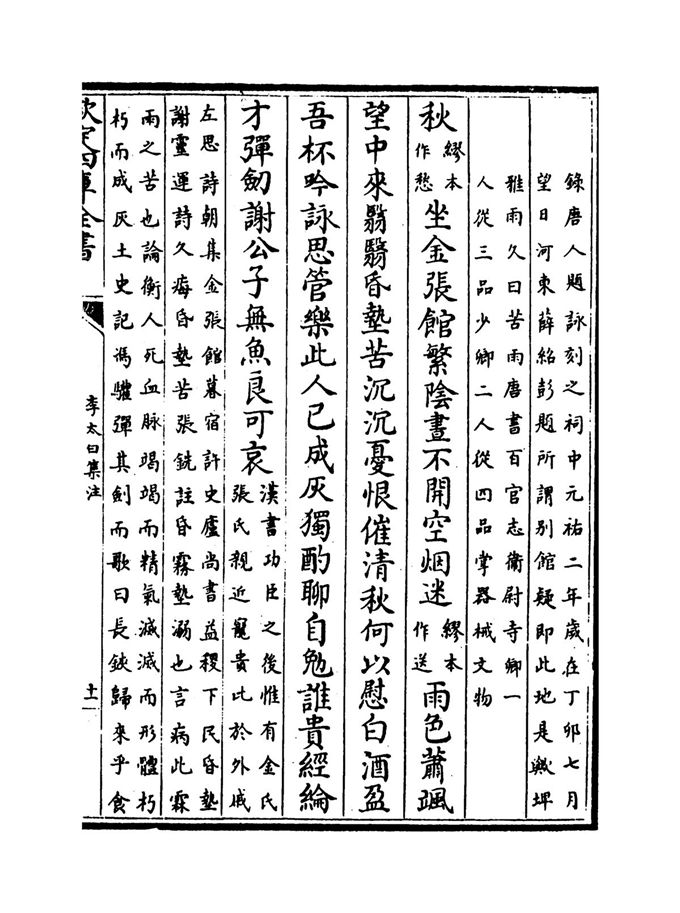 錄唐人題詠刻之祠中元祐二年歲在丁卯七月
望日河東薛紹彭題所謂別館疑即此地是歟埤
雅雨久曰苦雨唐書百官志衛尉寺卿一
人從三品少卿二人從四品掌器械文物
秋繆本作愁坐金張館繁陰晝不開空烟迷繆本作送雨色蕭颯
望中來翳翳昏墊苦沉沉憂恨催清秋何以慰白酒盈
吾杯吟詠思管樂此人已成灰獨酌聊自勉誰貴經綸
才彈劒謝公子無魚良可哀漢書功臣之後惟有金氏
張氏親近寵貴比於外戚
左思詩朝集金張館暮宿許史廬尚書益稷下民昏墊
謝靈運詩久痗昏墊苦張銑註昏霧墊溺也言病此霖
雨之苦也論衡人死血脉竭竭而精氣滅滅而形體朽
朽而成灰土史記馮驩彈其劍而歌曰長鋏歸來乎食
欽定四庫全書
李太白集注
十一